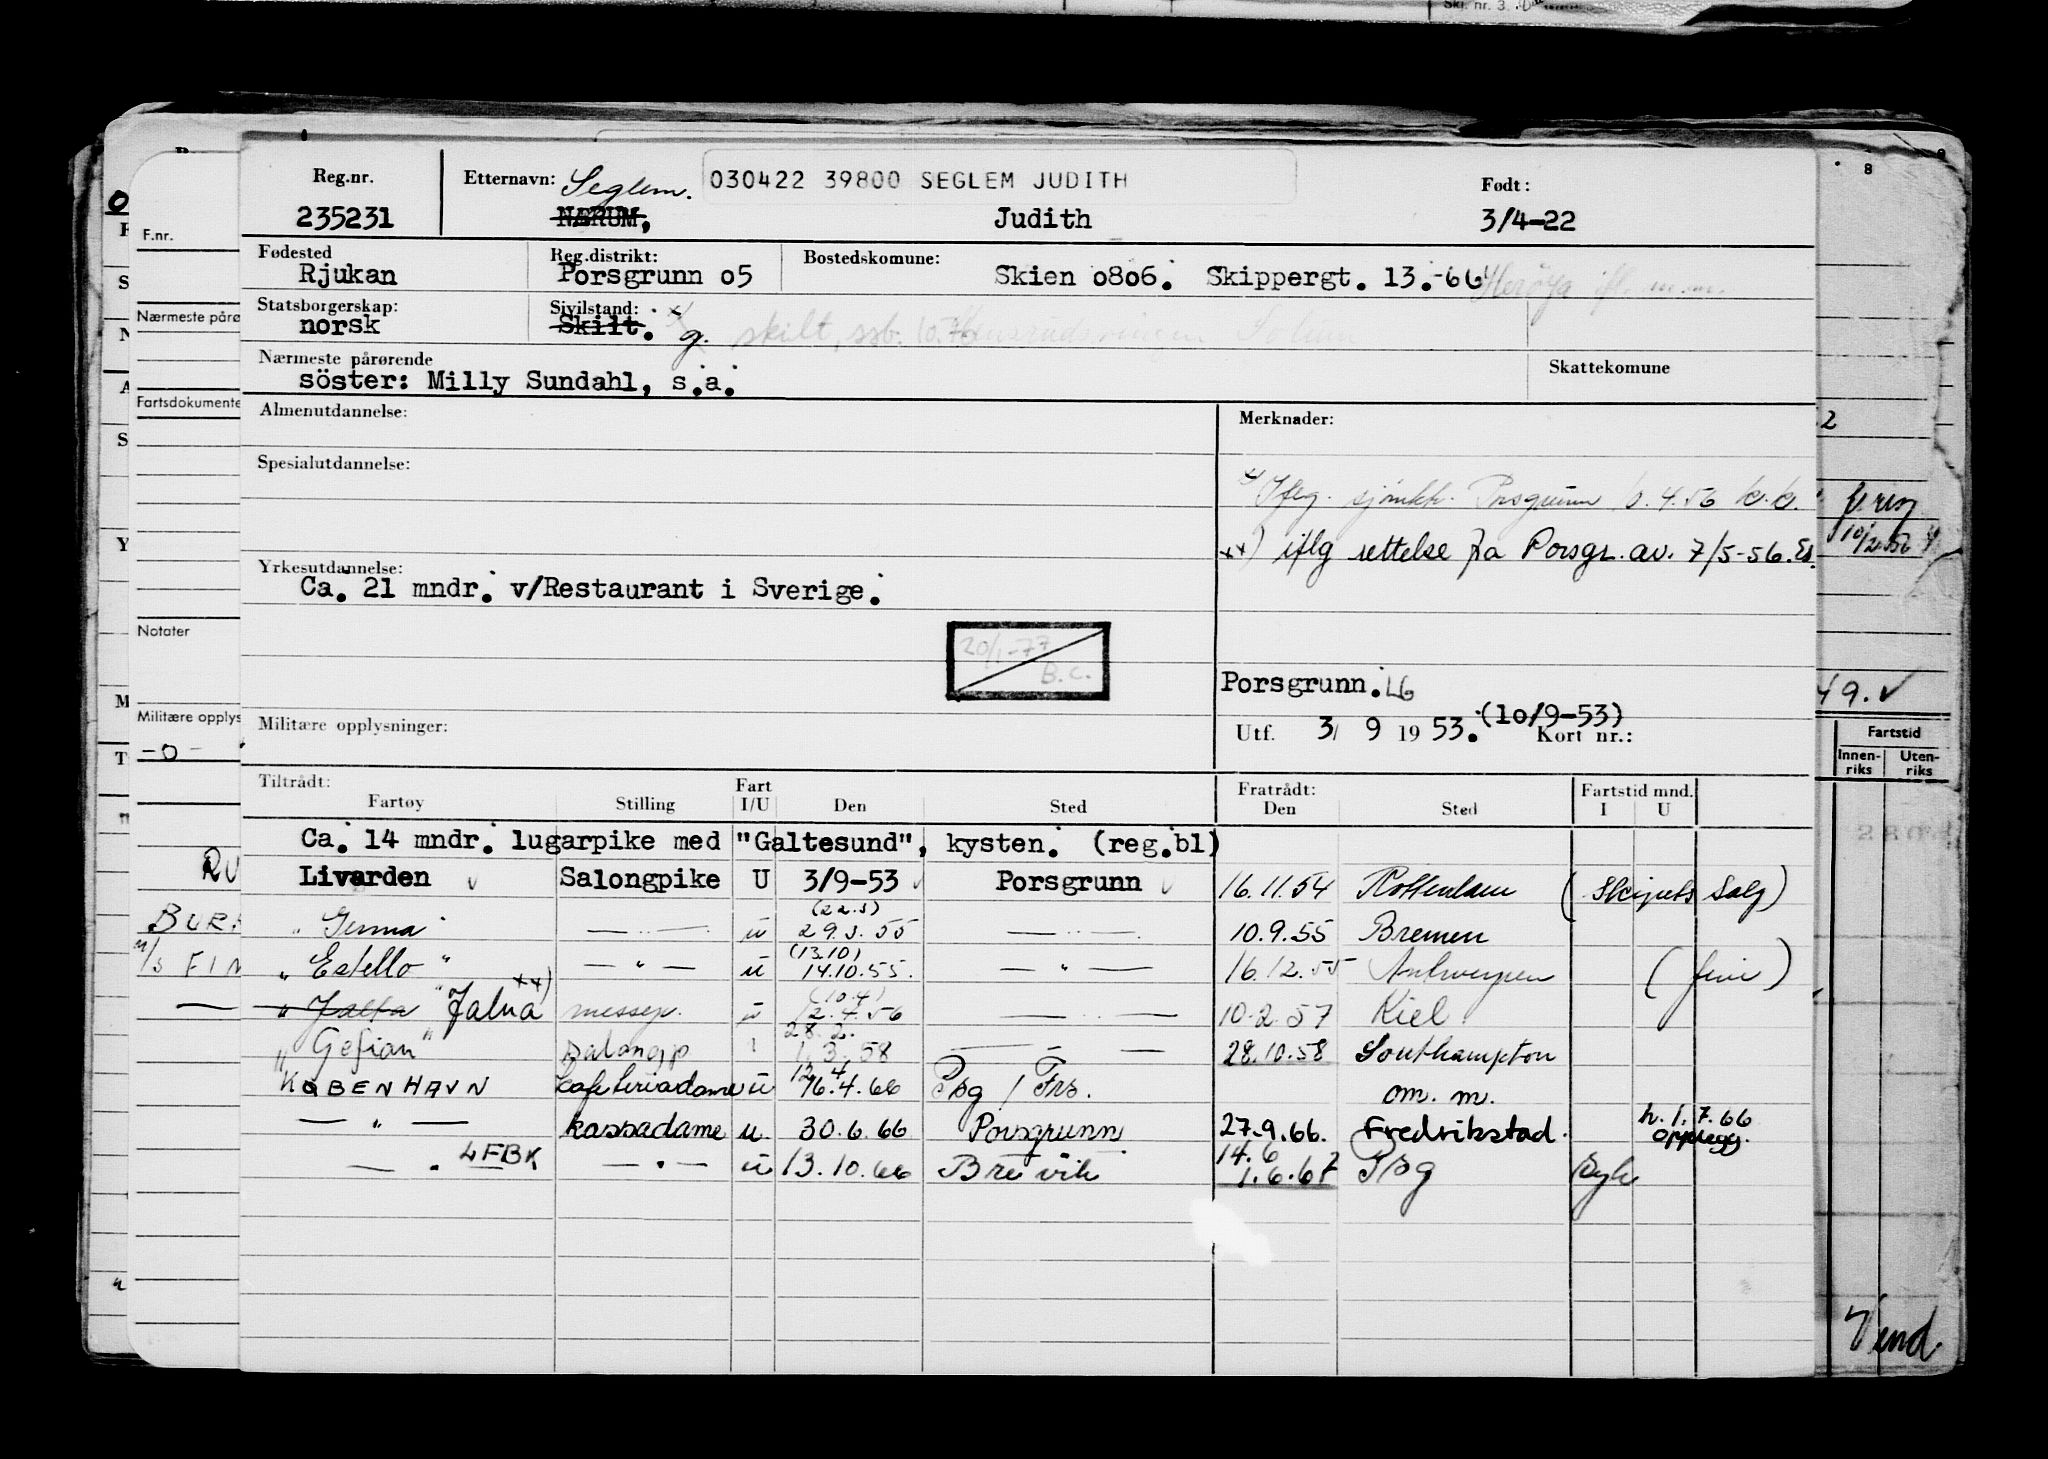 Reg.nr. Etternavn: Seglem. 030422 39800 SEGLEM JUDITH Født:
235231 NÆRUM, Judith 3/4-22
Fødested Reg.distrikt: Bostedskomune:
Rjukan Porsgrunn o5 Skien o8o6. Skippergt. 13.-66 Herøya
Statsborgerskap: Sivilstand:
norsk Skilt. g. skilt, ssb.
Nærmeste pårørende Skattekomune
söster: Milly Sundahl, s.a.
Almenutdannelse: Merknader:
Spesialutdannelse:
x) Iflg. sjömkk. Porsgrunn 10.4.56 k.k.
xx) iflg rettelse fra Porsgr. av. 7/5-56.
Yrkesutdannelse:
Ca. 21 mndr. v/Restaurant i Sverige.
20/1-77
B.C.
Porsgrunn.
Militære opplysninger: Utf. 3/ 9 1953. (lo/9-53) Kort nr.:
Tiltrådt: Fratrådt: Fartstid mnd.
Fartøy Stilling Fart I/U Den Sted Den Sted I U
Ca. 14 mndr. lugarpike med "Galtesund", kysten. (reg.bl)
Livarden Salongpike U 3/9-53 Porsgrunn 16.11.54 Rotterdam (Skipets Salg)
(22.3)
" Gunna — " — u 29.3.55 — " — 10.9.55 Bremen
(13.10)
" Estello " — " — u 14.10.55. — " — 16.12.55 Antwerpen (ferie)
(10.4)
" Jalta " Jalna xx) messep. u 12.4.56 — " — 10.2.57 Kiel
28.2.
" Gefion " Salongp 1.3.58 — " — 28.10.58 Southampton
12.4
KØBENHAVN kafeteriadame u 16.4.66 Psg / Frs. om. m.
— " — kassadame u. 30.6.66 Porsgrunn 27.9.66. Fredrikstad. h. 1.7.66 opplegg.
14.6
— " — LFBK — " — u 13.10.66 Brevik 1.6.67 Psg Syk
F.nr.
Nærmeste pårø
Fartsdokumente
Notater
Militære opplys
-0-
BUR
M/S FIN
49.
Fartstid
Innenriks Utenriks
Vend